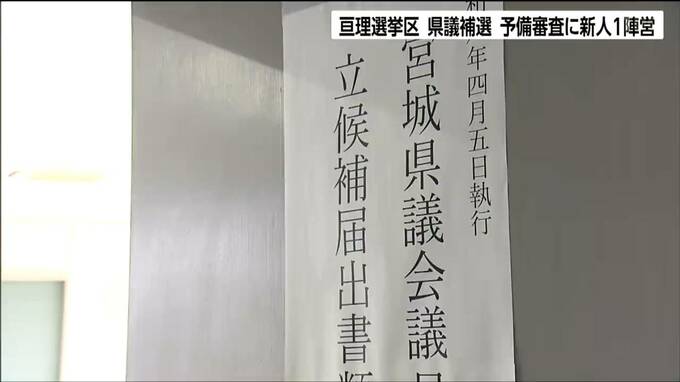 亘理選挙区 県議補選 予備審査に新人1陣営
年四月五日執行
宮城県議会議員
立候補届出書類